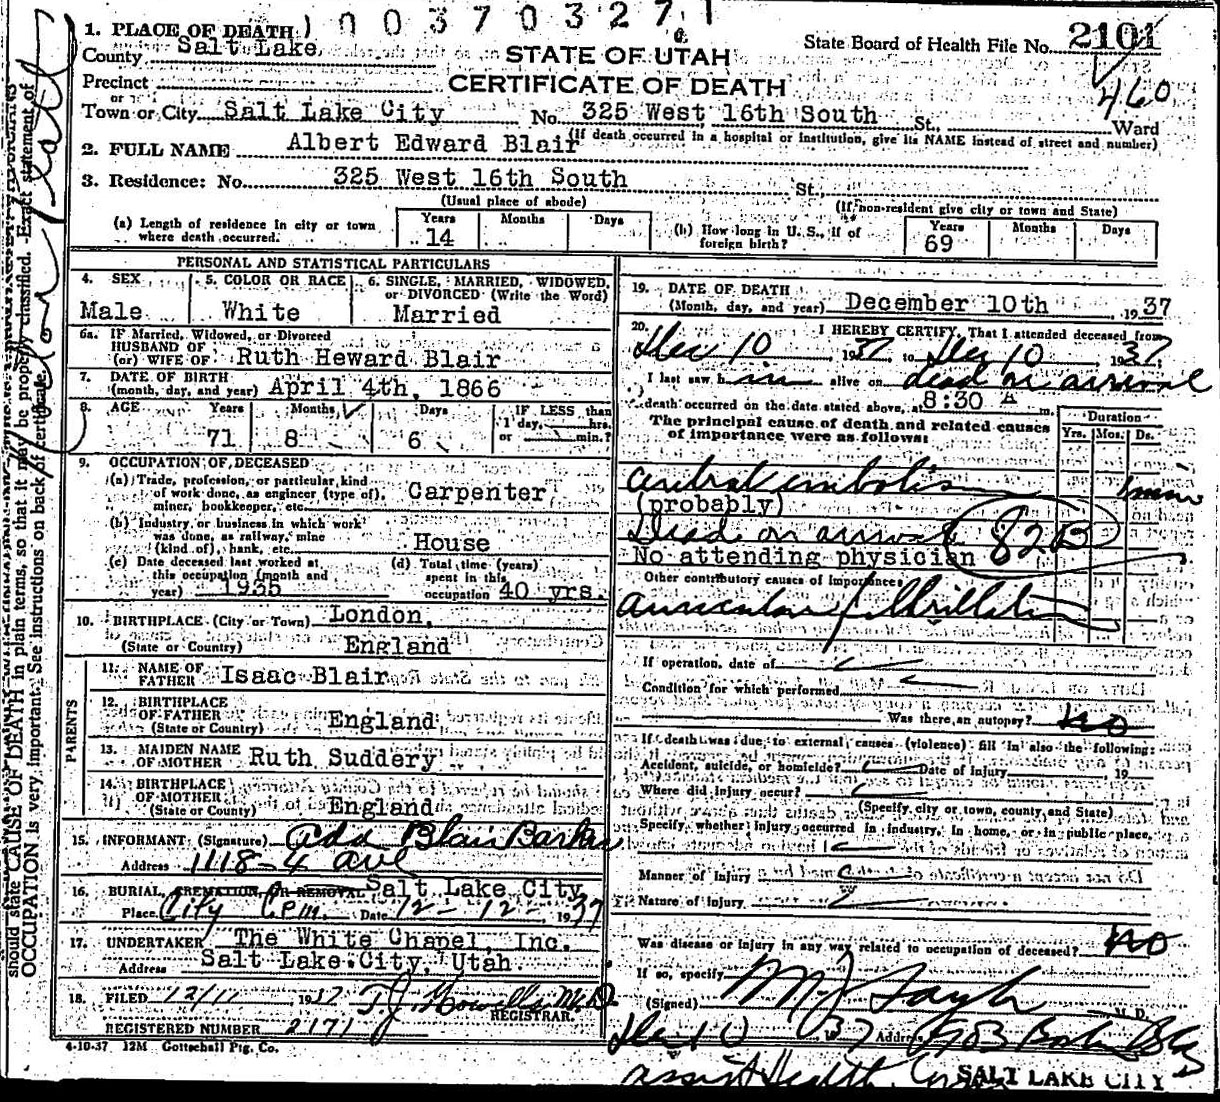 1003703271
1. PLACE OF DEATH
County Salt Lake
Precinct
or
Town or City Salt Lake City No. 325 West 16th South St. Ward
(If death occurred in a hospital or institution, give its NAME instead of street and number)
STATE OF UTAH
CERTIFICATE OF DEATH
State Board of Health File No. 2101
460
2. FULL NAME Albert Edward Blair
3. Residence: No. 325 West 16th South St.
(Usual place of abode)
(If non-resident give city or town and State)
(a) Length of residence in city or town where death occurred. Years 14 Months Days
(b) How long in U. S., if of foreign birth? Years 69 Months Days
PERSONAL AND STATISTICAL PARTICULARS
4. SEX Male
5. COLOR OR RACE White
6. SINGLE, MARRIED, WIDOWED, or DIVORCED (Write the Word) Married
6a. IF Married, Widowed, or Divorced
HUSBAND OF
(or) WIFE OF Ruth Heward Blair
7. DATE OF BIRTH
(month, day, and year) April 4th, 1866
8. AGE Years 71 Months 8 Days 6 IF LESS than 1 day, hrs. or min.?
9. OCCUPATION OF DECEASED
(a) Trade, profession, or particular kind
of work done, as engineer (type of), Carpenter
miner, bookkeeper, etc.
(b) Industry or business in which work
was done, as railway, mine House
(kind of), bank, etc.
(c) Date deceased last worked at
this occupation (month and
year) 1935
(d) Total time (years)
spent in this
occupation 40 yrs.
10. BIRTHPLACE (City or Town) London,
(State or Country) England
PARENTS
11. NAME OF
FATHER Isaac Blair
12. BIRTHPLACE
OF FATHER England
(State or Country)
13. MAIDEN NAME
OF MOTHER Ruth Suddery
14. BIRTHPLACE
OF MOTHER England
(State or County)
15. INFORMANT (Signature) Ada Blair Barker
Address 1118-4 ave
16. BURIAL, CREMATION OR REMOVAL Salt Lake City
Place City Cem. Date 12-12- 1937
17. UNDERTAKER The White Chapel, Inc.
Address Salt Lake City, Utah.
18. FILED 12/11 1937 T J Howells M.D.
REGISTRAR.
REGISTERED NUMBER 2171
4-10-37 12M Gottschall Ptg. Co.
19. DATE OF DEATH
(Month, day, and year) December 10th, 1937
20. I HEREBY CERTIFY, That I attended deceased from
Dec 10, 1937 to Dec 10 1937
I last saw him alive on dead on arrival
death occurred on the date stated above, at 8:30 A m.
The principal cause of death and related causes
of importance were as follows:
Duration
Yrs. Mos. Ds.
cerebral embolism
(probably)
Dead on arrival 82B
No attending physician
Other contributory causes of importance:
auricular fibrillation
If operation, date of
Condition for which performed
Was there an autopsy? no
If death was due to external causes (violence) fill in also the following:
Accident, suicide, or homicide? Date of injury , 19
Where did injury occur?
(Specify city or town, county, and State)
Specify whether injury occurred in industry, in home, or in public place.
Manner of injury
Nature of injury
Was disease or injury in any way related to occupation of deceased? no
If so, specify
(Signed) M. D.
Dec 10 37 Address
assist Health
SALT LAKE CITY
should state CAUSE OF DEATH in plain terms, so that it may be properly classified. Exact statement of
OCCUPATION is very important. See instructions on back of certificate.